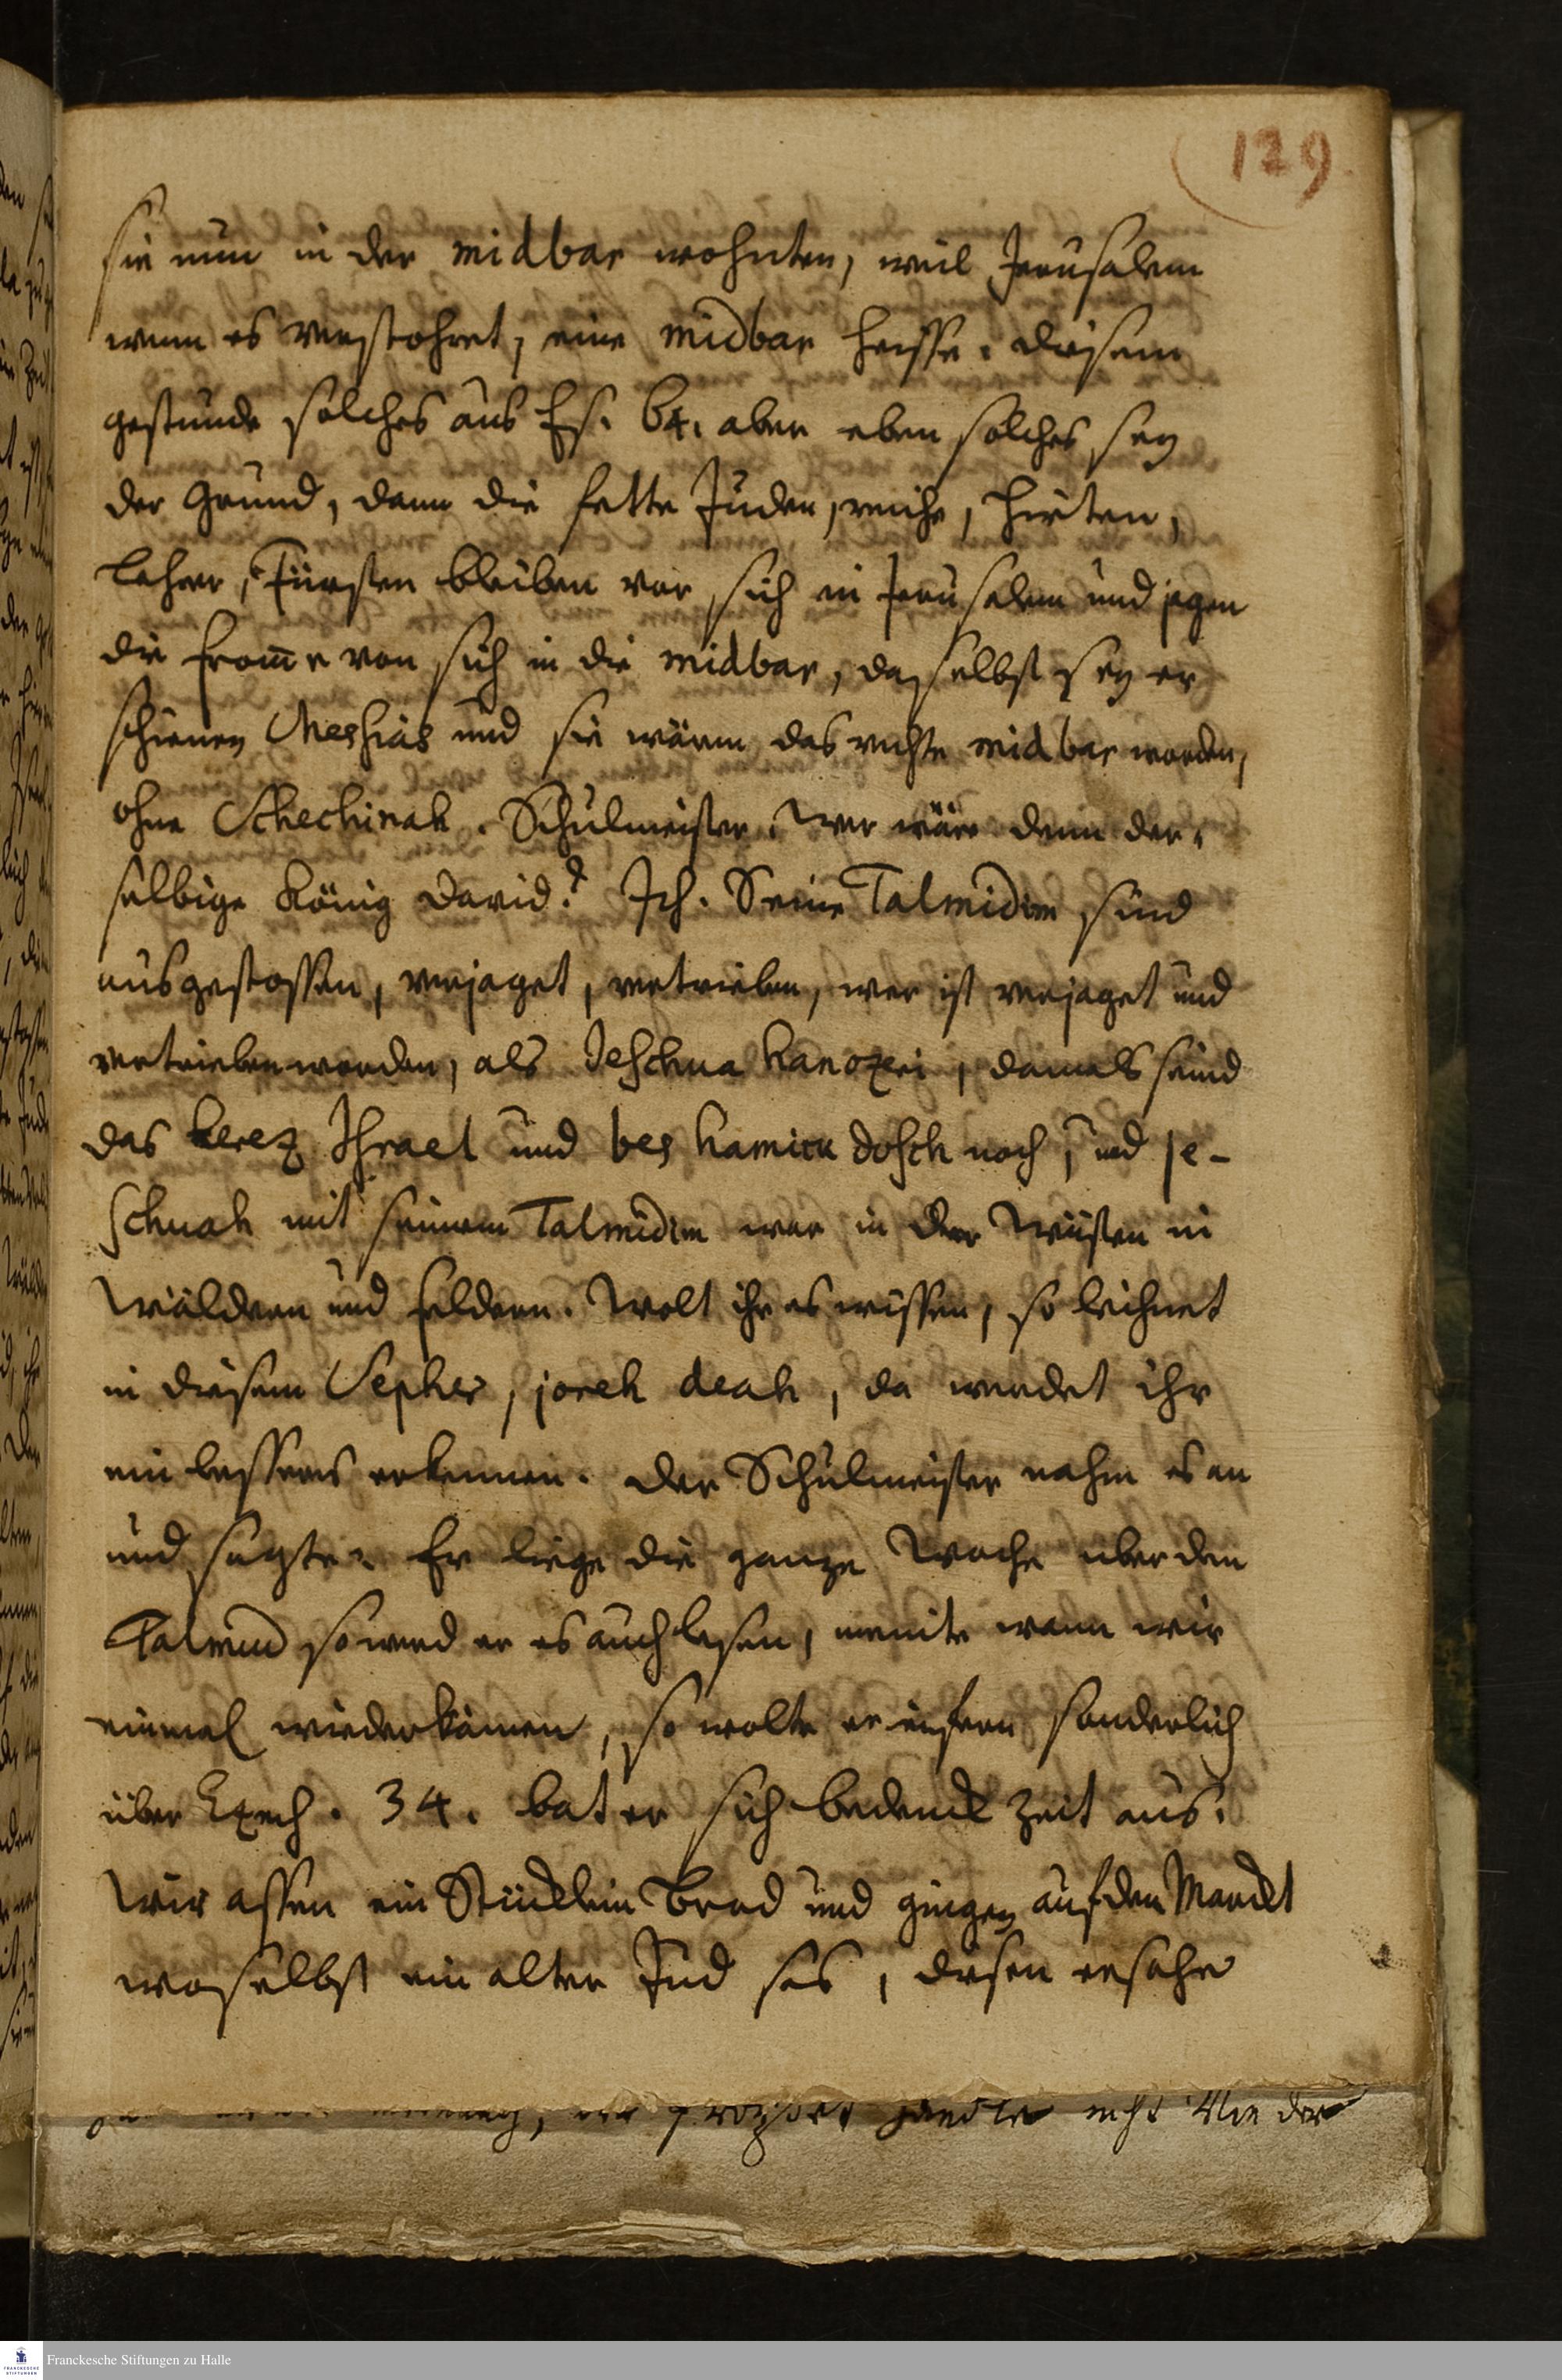 129
sie nun in der midbar wohnten, weil Jerusalem
wenn es verstohret, eine midbar heisse. diesem
gestunde solches aus Es. 64. aber eben solches sey
der Grund, dann die fette Juden, reiche, Hirten,
Lehrer, Fürsten bleiben vor sich in Jerusalem und jagen
die from̄e von sich in die midbar, daselbst sey er
schienen Meshias und sie wären das rechte midbar worden,
ohne Schechinah. Schulmeister. Wer wäre denn der-
selbige König David? Ich. Seine Talmidim sind
ausgestossen, verjaget, vertrieben, wer ist verjaget und
vertrieben worden, als Jeschua hanozri, damals stund
das Erez Jsrael und bes hamickdosch noch, und Je-
schuah mit seinem Talmidim war in der Wüsten in
Wäldern und Feldern. Wolt ihr es wissen, so leihnet
in diesem Sepher, joreh deah, da werdet ihr
ein bessers erkennen. Der Schulmeister nahm es an
und sagte. Er liege die ganze Woche uber dem
Talmud so werd er es auch lesen, meinte wann wir
einmal wiederkämen, so wolte er sonderlich
über Ezech. 34. bat er sich bedenck Zeit aus.
Wir assen ein Stücklein Brod und gingen auf den Marckt
woselbst ein alter Jud sas, diesen ersahe
nicht der
Franckesche Stiftungen zu Halle